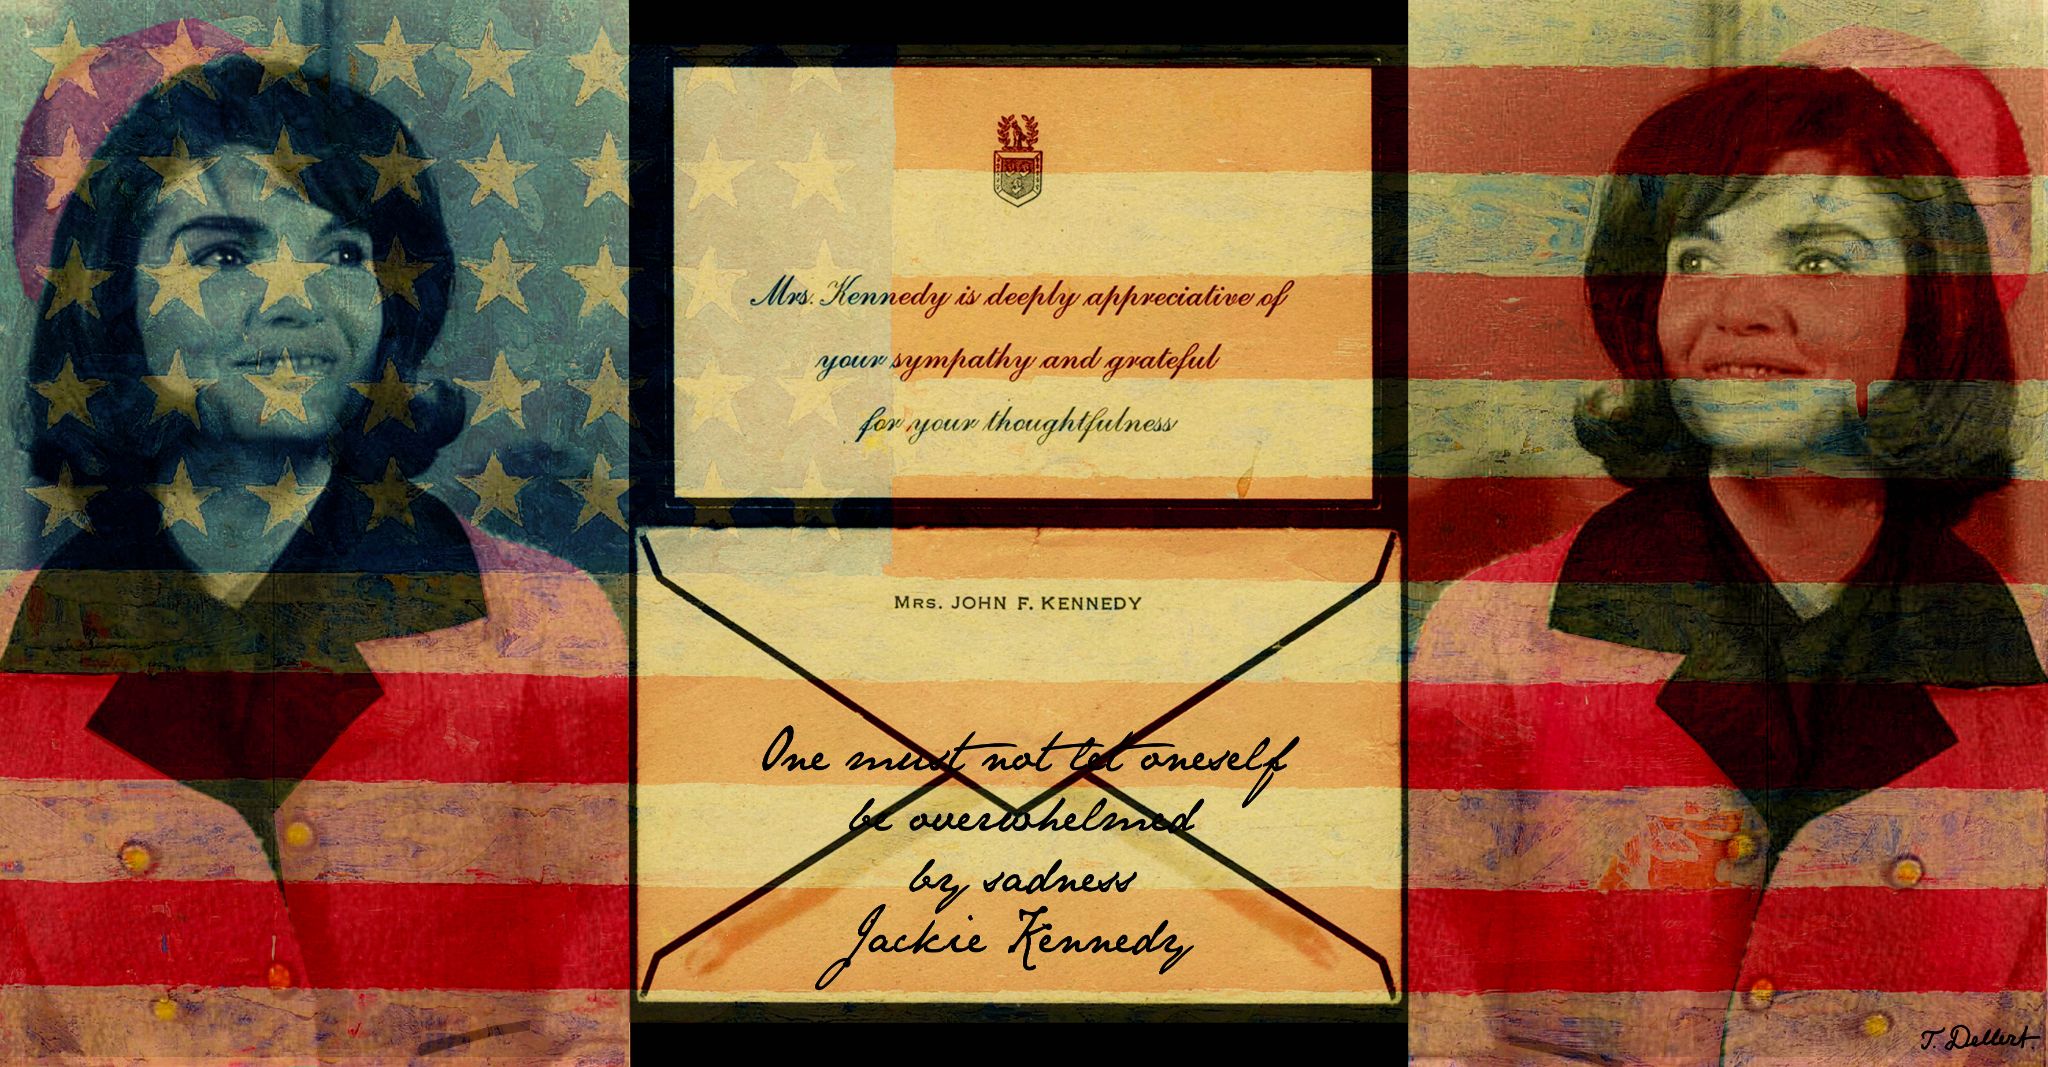 Mrs. Kennedy is deeply appreciative of
your sympathy and grateful
for your thoughtfulness
MRS. JOHN F. KENNEDY
One must not let oneself
be overwhelmed
by sadness
Jackie Kennedy
T. Dellert.